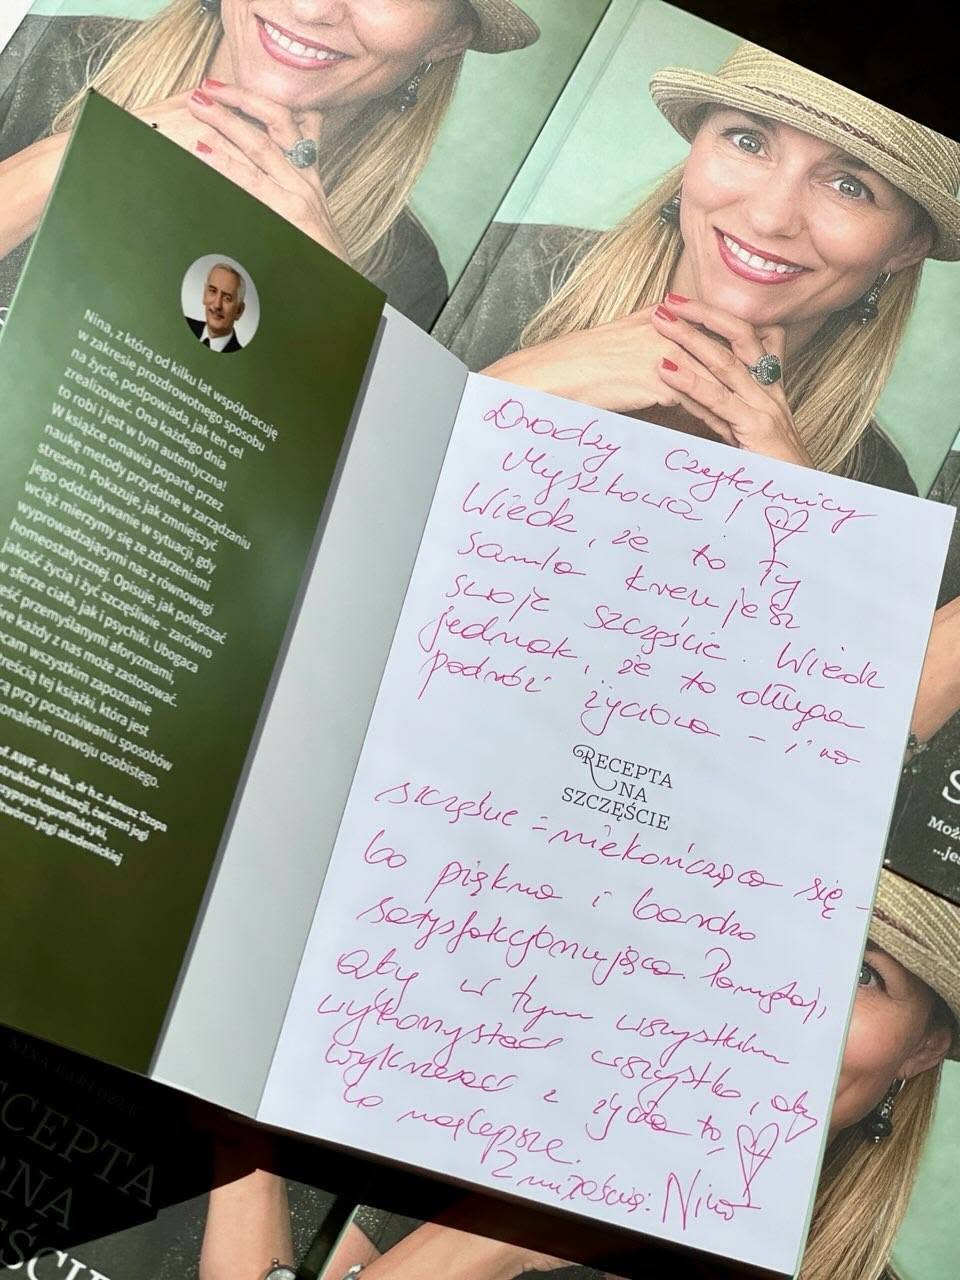 Nina, z którą od kilku lat współpracuję
w zakresie prozdrowotnego sposobu
na życie, podpowiada, jak ten cel
zrealizować. Ona każdego dnia
to robi i jest w tym autentyczna!
W książce omawia poparte przez
naukę metody przydatne w zarządzaniu
stresem. Pokazuje, jak zmniejszyć
jego oddziaływanie w sytuacji, gdy
wciąż mierzymy się ze zdarzeniami
wyprowadzającymi nas z równowagi
homeostatycznej. Opisuje, jak polepszać
jakość życia i żyć szczęśliwie – zarówno
w sferze ciała, jak i psychiki. Ubogaca
eść przemyślanymi aforyzmami,
óre każdy z nas może zastosować.
ecam wszystkim zapoznanie
treścią tej książki, która jest
cą przy poszukiwaniu sposobów
konalenie rozwoju osobistego.
of. AWF, dr hab., dr h.c. Janusz Szopa
struktor relaksacji, ćwiczeń jogi
zypsychoprofilaktyki,
ółtwórca jogi akademickiej
Drodzy Czytelnicy
Myszkowa!
Wiedz, że to Ty
samla kreujesz
swoje szczęście. Wiedz
jednak, że to długa
podróż życiowa – i na
RECEPTA
NA
SZCZĘŚCIE
szczęście – niekończąca się –
bo piękna i bardzo
satysfakcjonująca. Pamiętaj,
aby w tym wszystkim
wykorzystać wszystko, aby
wykrzesać z życia to,
co najlepsze.
Z miłością: Nina
Moż
...jes
CEPTA
NA